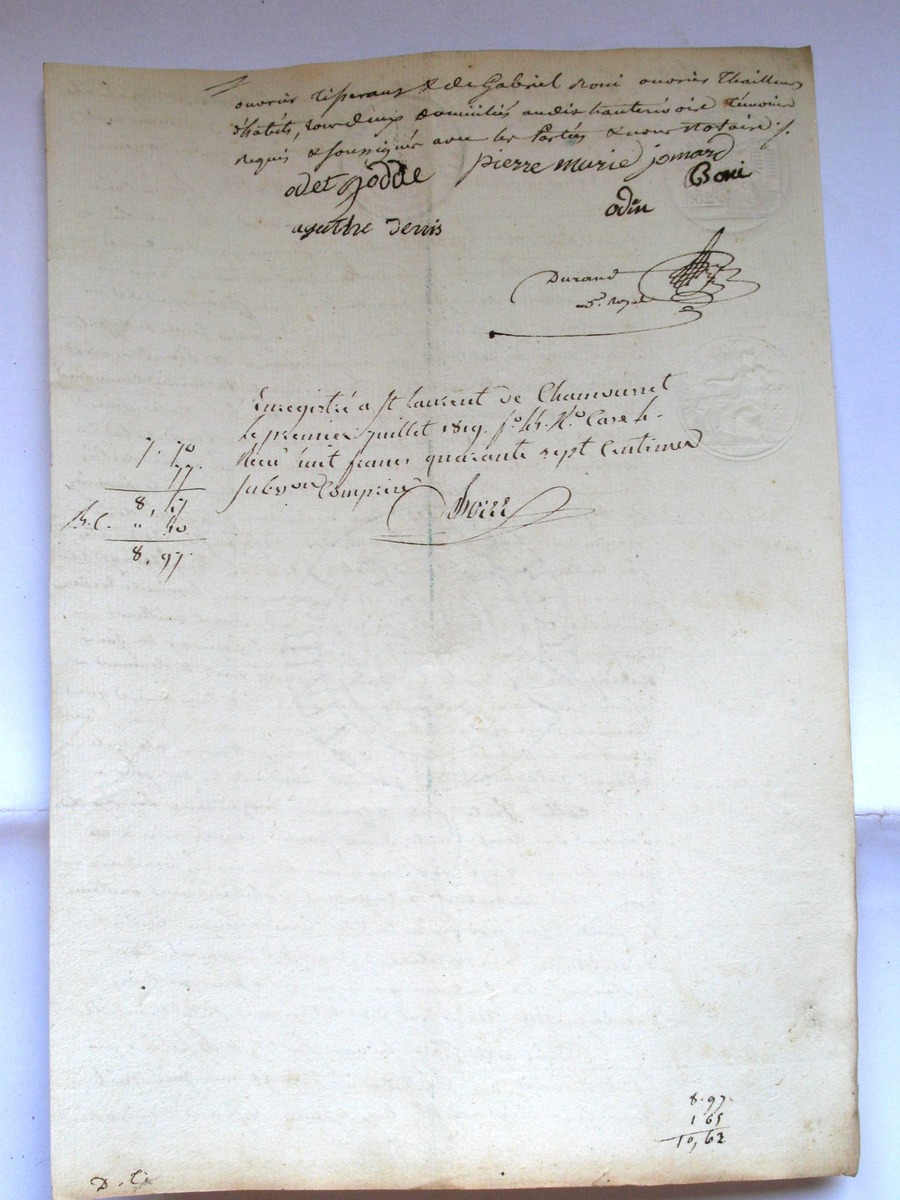 ouvrier Tisserant & de Gabriel Boni ouvrier Thailleur
d'habits, tous deux domiciliés audit hauterivoire témoins
requis & soussignés avec les Parties & nous notaire ./.
pierre marie jomard
odet Boni
odin
agathe denis
Durand
nre. royal
Enregistré a St Laurent de Chamousset
le premier Juillet 1819. fo. Vo. Case 4.
Reçu huit francs quarante sept Centimes
Subvon Comprise
7. 70
77.
8, 47
8. 97
8. 97.
1 65
10, 62